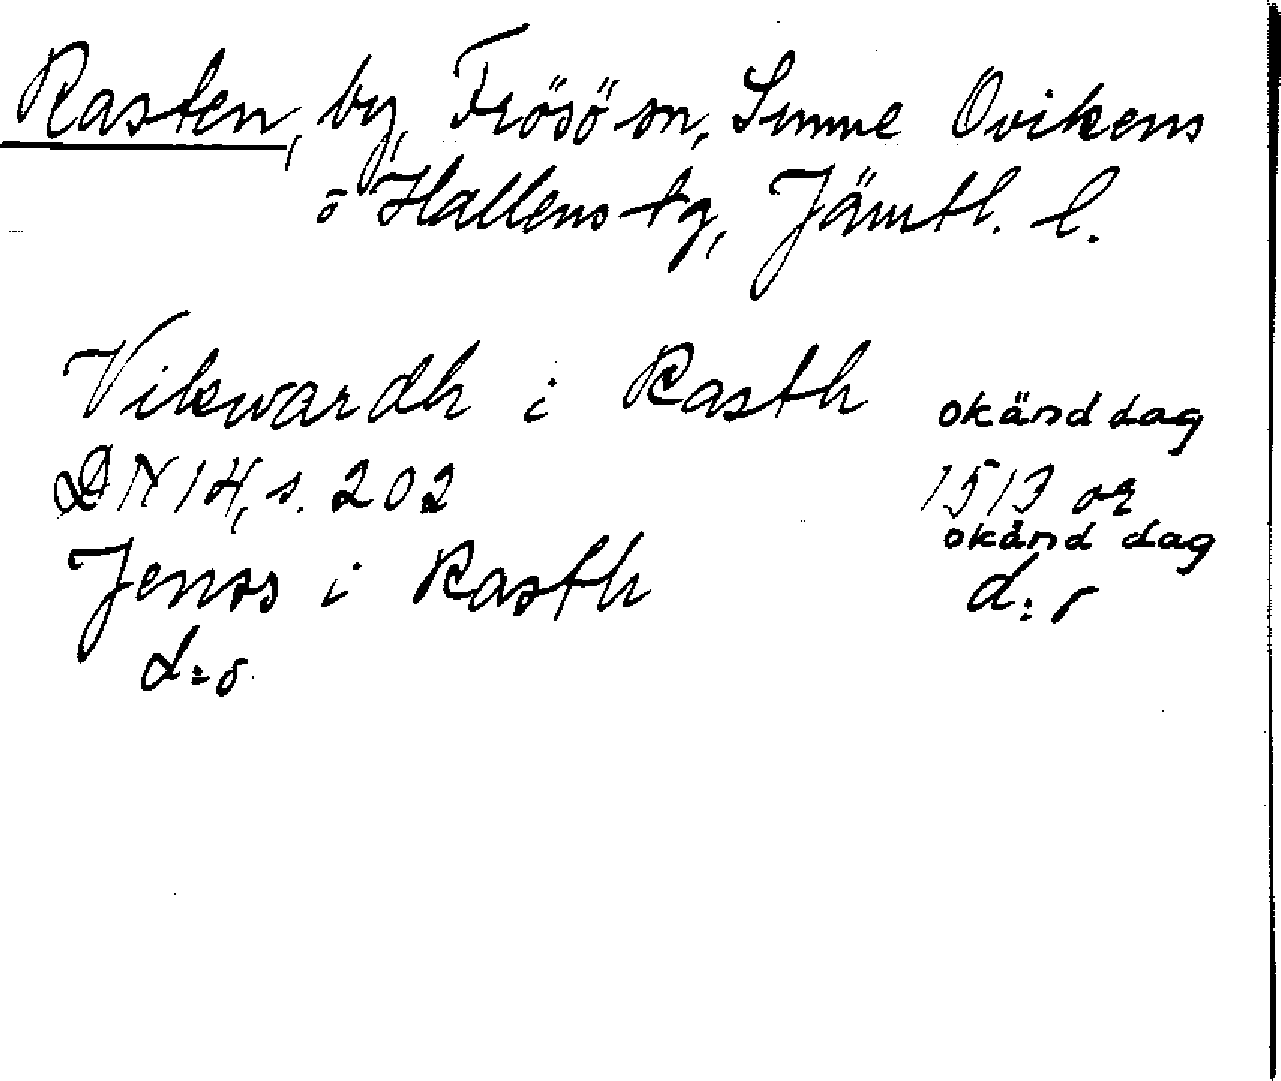 Rasten, by, Frösö sn, Sunne Ovikens
o Hallens tg, Jämtl. l.
Vikwardh i Rasth okänd dag
DN 14, s. 202 1513 or
Jenss i Rasth okänd dag
d:o d:r